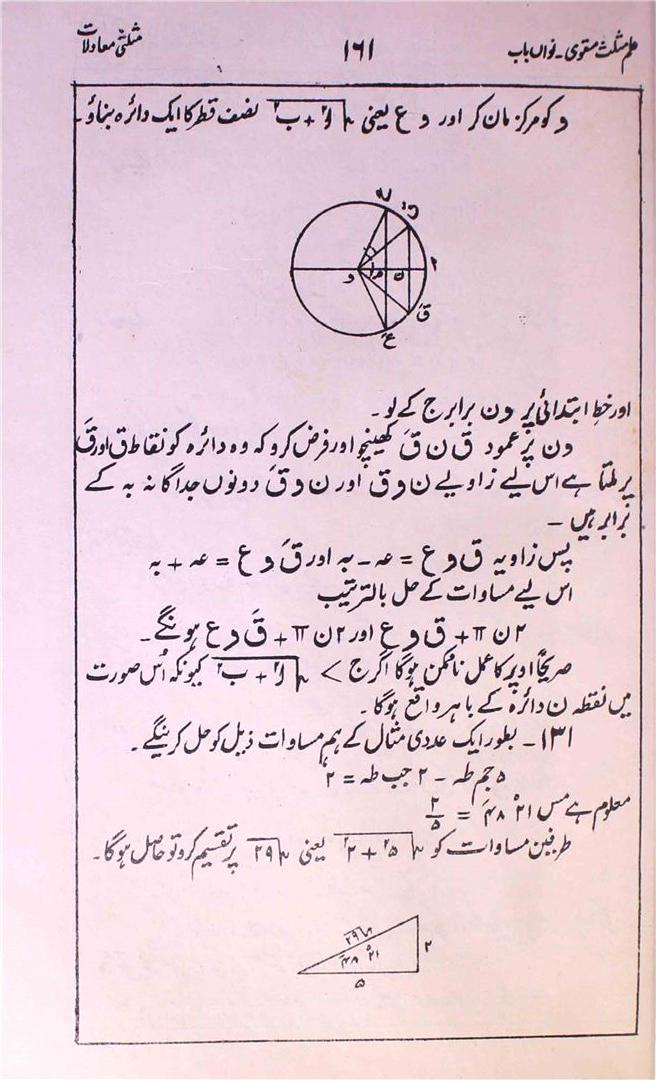 علم مثلث مستوی ۔ نواں باب
۱۶۱
مثلثی معادلات
و کو مرکز مان کر اور و ع یعنی √(ا² + ب²) نصف قطر کا ایک دائرہ بناؤ ۔
ق
م
ن
و
قَ
ع
اور خطِ ابتدائی پر و ن برابر ج کے لو ۔
و ن پر عمود ق ن قَ کھینچو اور فرض کرو کہ وہ دائرہ کو نقاط ق اور قَ
پر ملتا ہے اس لیے زاویے ن و ق اور ن و قَ دونوں جداگانہ بہ کے
برابر ہیں ۔
پس زاویہ ق و ع = عہ ۔ بہ اور قَ و ع = عہ + بہ
اس لیے مساوات کے حل بالترتیب
۲ ن π + ق و ع اور ۲ ن π + قَ و ع ہونگے ۔
صریحاً اوپر کا عمل ناممکن ہوگا اگر ج > √(ا² + ب²) کیونکہ اُس صورت
میں نقطہ ن دائرہ کے باہر واقع ہوگا ۔
۱۳۱ ۔ بطور ایک عددی مثال کے ہم مساوات ذیل کو حل کرینگے ۔
۵ جم طہ ۔ ۲ جب طہ = ۲
معلوم ہے مس ۲۱° ۴۸َ = ۲/۵
طرفین مساوات کو √(۵² + ۲²) یعنی √۲۹ پر تقسیم کرو تو حاصل ہوگا ۔
√۲۹
۲
۲۱° ۴۸َ
۵